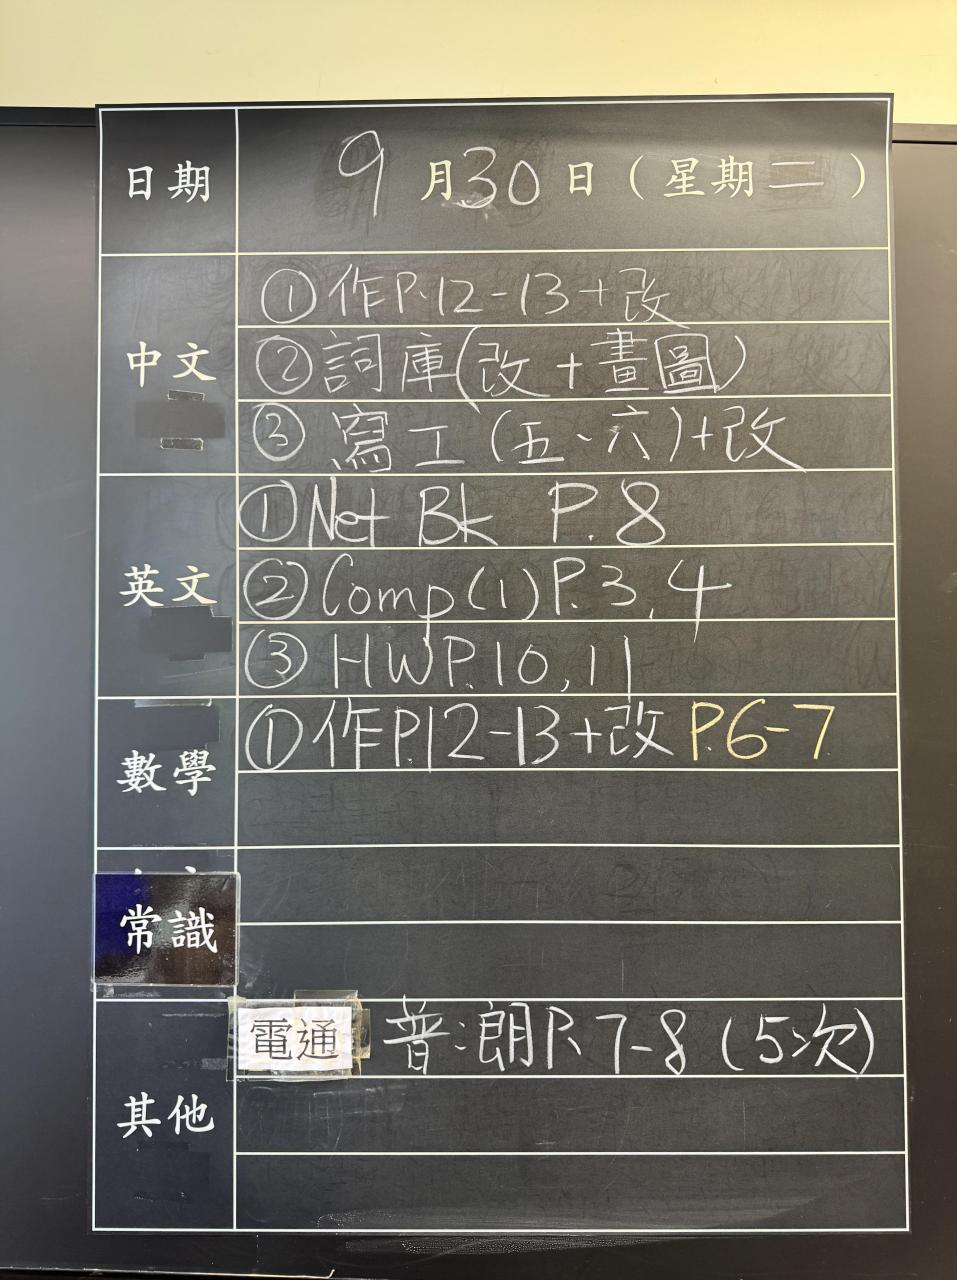 日期 9月30日（星期二）
中文
①作P.12-13+改
②詞庫(改+畫圖)
③寫工(五、六)+改
英文
①Net Bk P.8
②Comp(1)P.3,4
③HWP.10,11
數學
①作P.12-13+改 P.6-7
常識
其他
電通 普:朗P.7-8(5次)